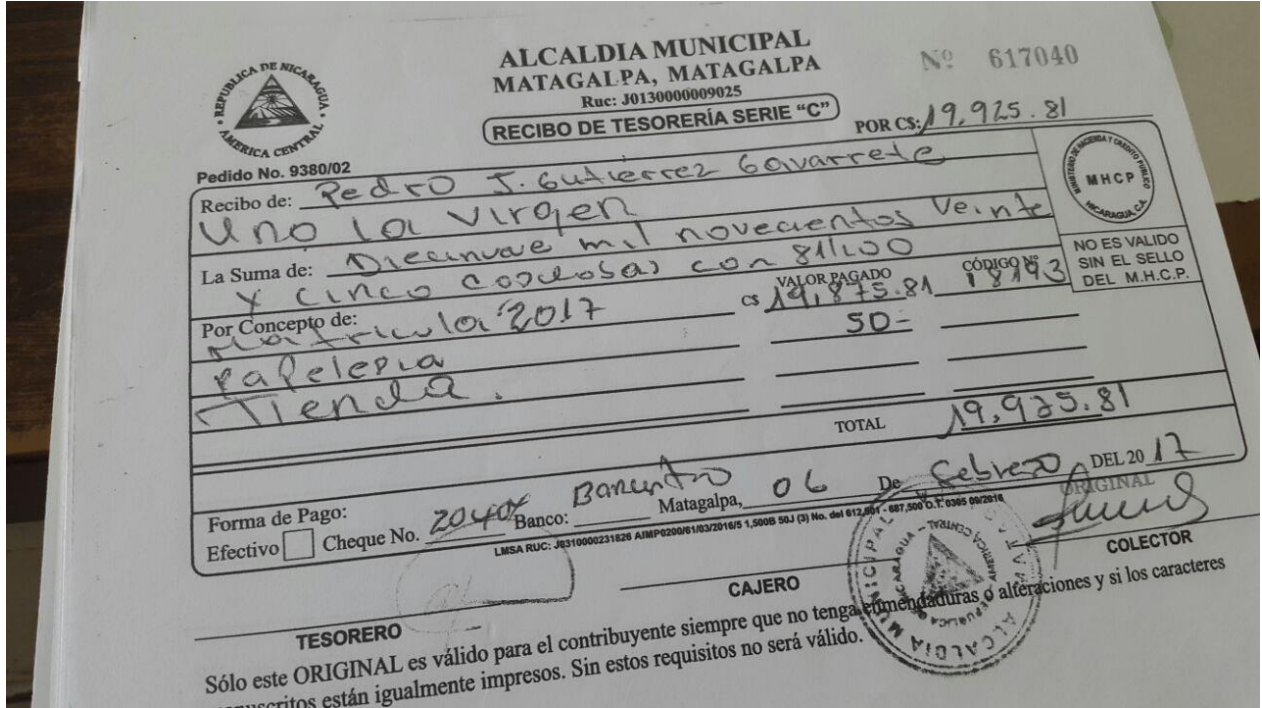 REPUBLICA DE NICARAGUA
AMERICA CENTRAL
ALCALDIA MUNICIPAL
MATAGALPA, MATAGALPA
Ruc: J0130000009025
RECIBO DE TESORERÍA SERIE “C”
Nº 617040
POR C$: 19,925.81
Pedido No. 9380/02
Recibo de: Pedro J. Gutierrez Gavarrete
Uno la Virgen
La Suma de: Diecinueve mil novecientos Veinte
y cinco con 81/100
MINISTERIO DE HACIENDA Y CREDITO PUBLICO
MHCP
NICARAGUA, C.A.
NO ES VALIDO
SIN EL SELLO
DEL M.H.C.P.
Por Concepto de: VALOR PAGADO CÓDIGO Nº
Matricula 2017 C$ 19,875.81 18193
Papeleria 50-
Tienda.
TOTAL 19,925.81
Forma de Pago:
Efectivo Cheque No. Banco: Matagalpa, 06 De febrero DEL 2017
LMSA RUC: J0310000231826 AIMP0200/61/03/2016/5 1,500B 50J (3) No. del 612,501 - 687,500 O.T. 0365 09/2016
ORIGINAL
COLECTOR
CAJERO
TESORERO
ALCALDIA MUNICIPAL
REPUBLICA DE NICARAGUA
AMERICA CENTRAL
Sólo este ORIGINAL es válido para el contribuyente siempre que no tenga enmendaduras o alteraciones y si los caracteres
manuscritos están igualmente impresos. Sin estos requisitos no será válido.